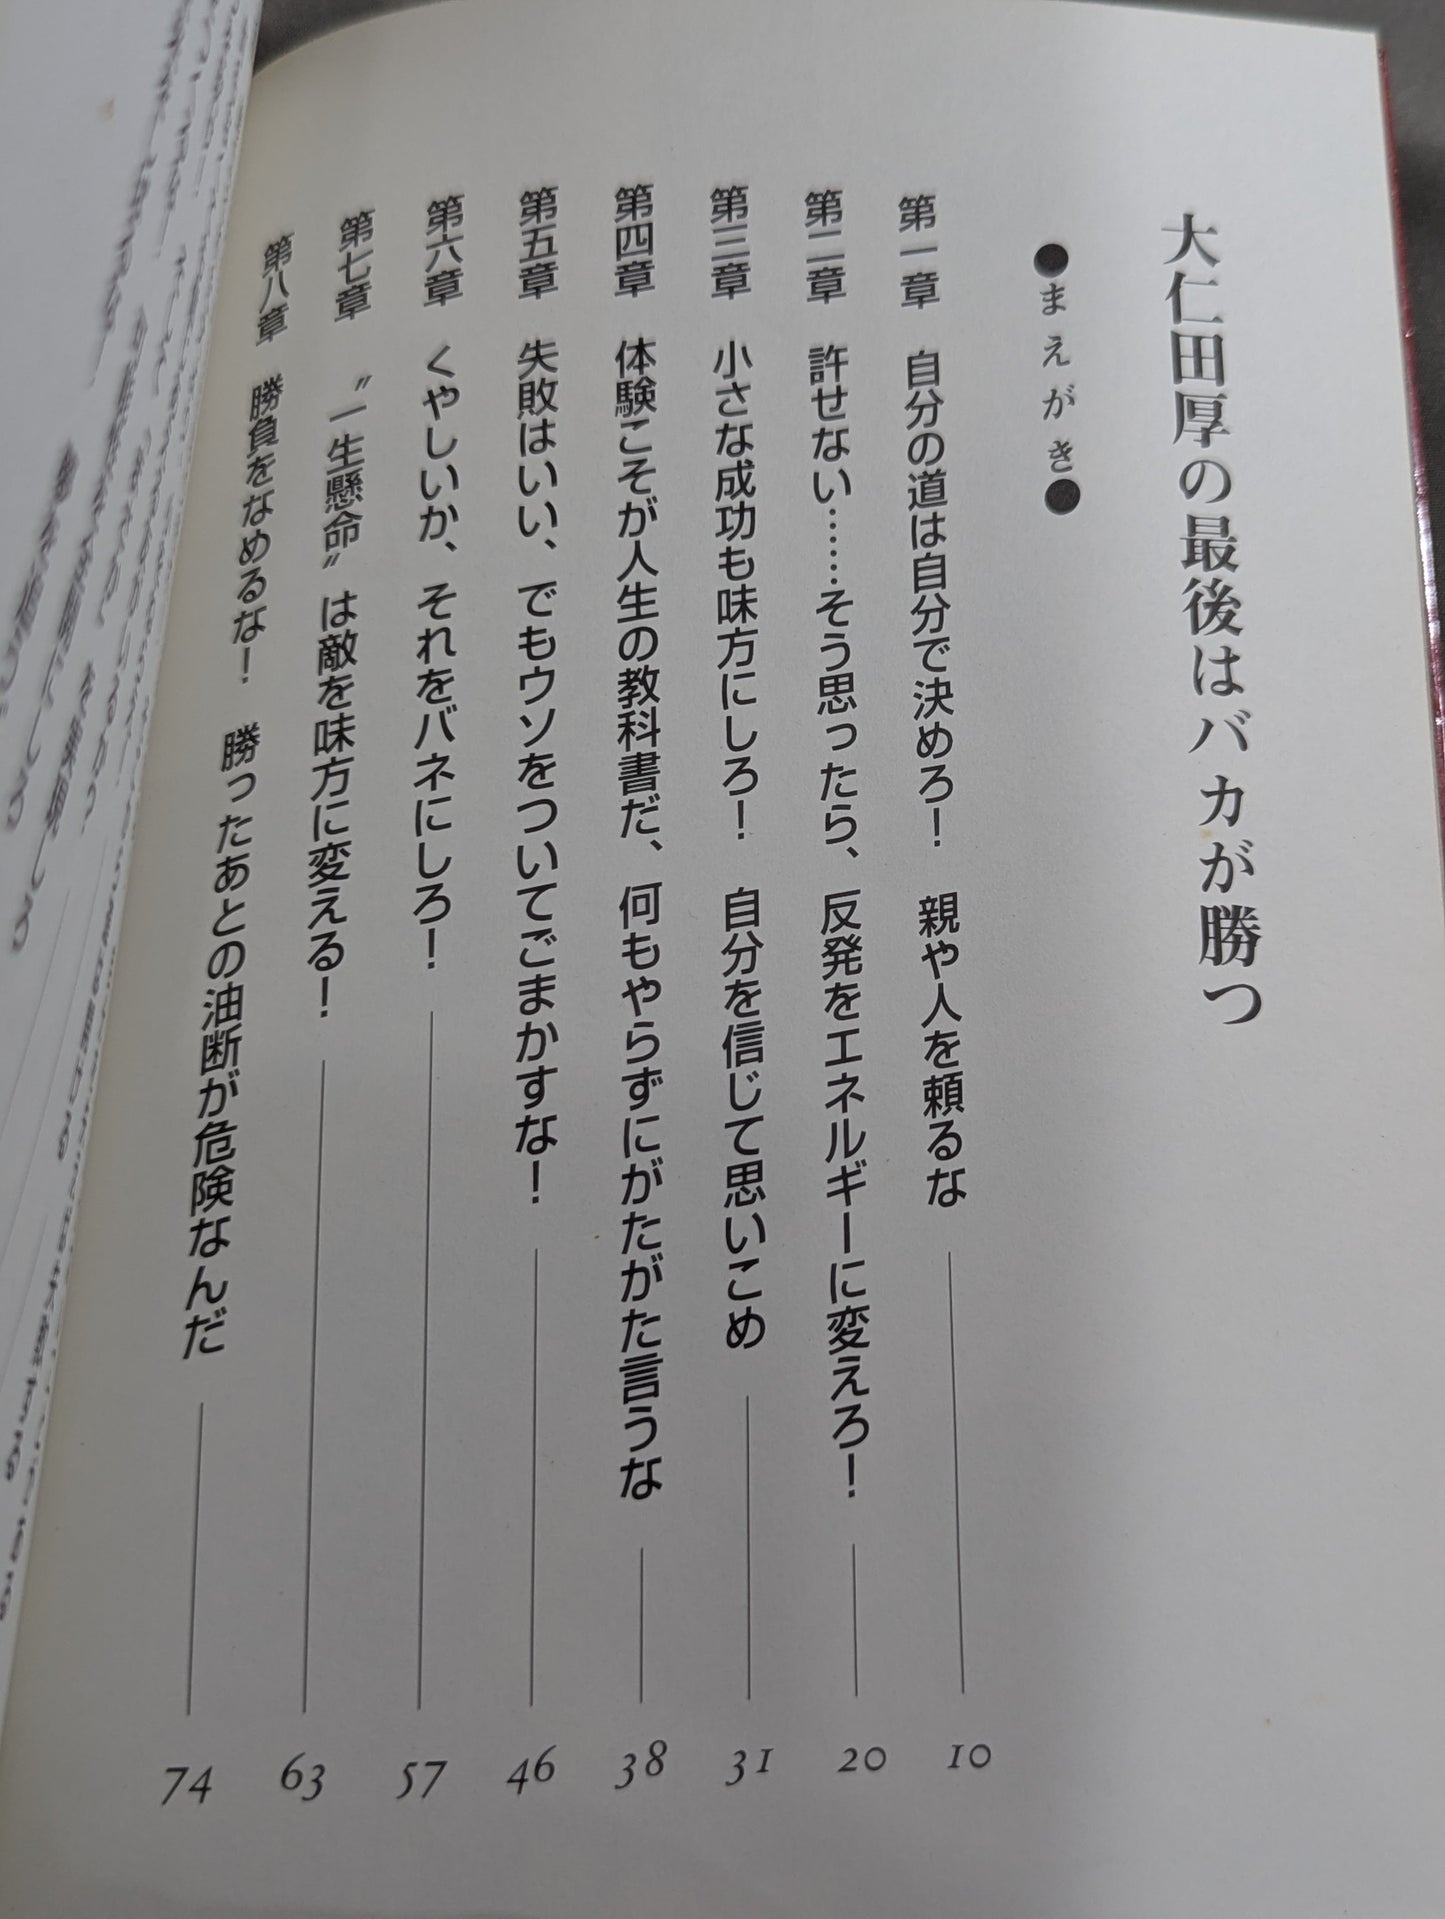 大仁田厚の最後はバカが勝つ
●まえがき●
第一章 自分の道は自分で決めろ! 親や人を頼るな 10
第二章 許せない……そう思ったら、反発をエネルギーに変えろ! 20
第三章 小さな成功も味方にしろ! 自分を信じて思いこめ 31
第四章 体験こそが人生の教科書だ、何もやらずにがたがた言うな 38
第五章 失敗はいい、でもウソをついてごまかすな! 46
第六章 くやしいか、それをバネにしろ! 57
第七章 〝一生懸命〟は敵を味方に変える! 63
第八章 勝負をなめるな! 勝ったあとの油断が危険なんだ 74